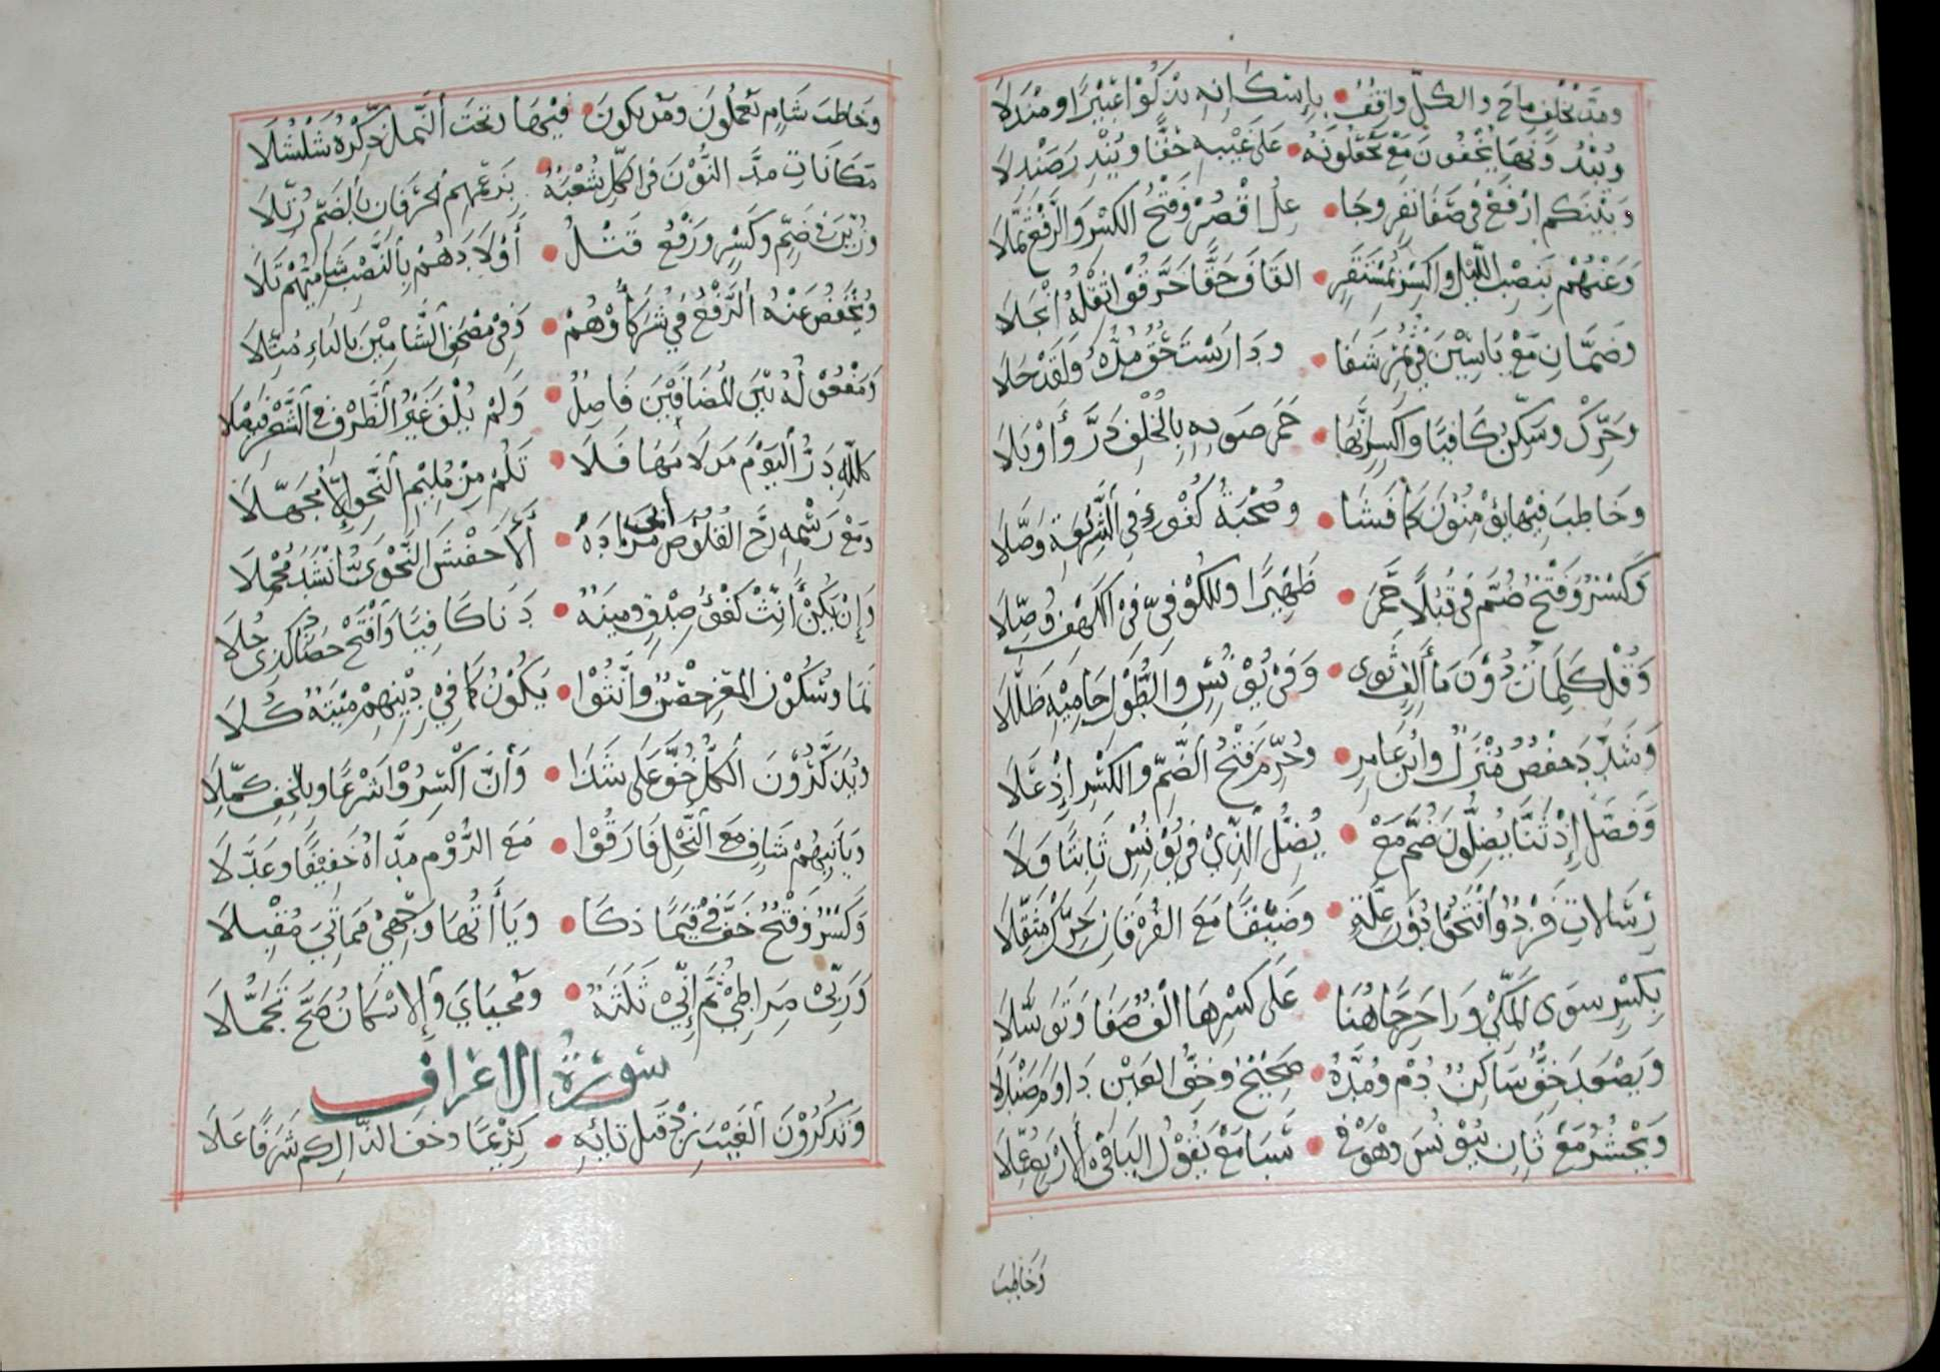 ومد بخلف ماج والكل واقف • بإسكانه يذكو اعبيرا ومندلا
وتبدونها يخفون مع تجعلونه • على غيبه حقا وينذر صندلا
وبينكم ارفع في صفا نفر وجا • عل اقصر وفتح الكسر والرفع ثملا
وعنهم بنصب الليل واكسر بمستقر • القاف حقا خرقوا ثقله انجلا
وضمان مع ياسين في ثمر شفا • ودارست حق مده ولقد حلا
وحرك وسكن كافيا واكسر انها • حمى صوبه بالخلف در وأوبلا
وخاطب فيها يؤمنون كما فشا • وصحبة كفؤ في الشريعة وصلا
وكسر وفتح ضم في قبلا حمى • ظهيرا وللكوفي في الكهف وصلا
وقل كلمات دون ما ألف ثوى • وفي يونس والطول حاميه ظللا
وشدد حفص منزل وابن عامر • وحرم فتح الضم والكسر إذ علا
وفصل إذ ثنا يضلون ضم مع • يضل الذي في يونس ثابتا ولا
رسالات فرد وافتحوا دون علة • وضيقا مع الفرقان حرك مثقلا
بكسر سوى المكي ورا حرجا هنا • على كسرها الف صفا وتوسلا
ويصعد خف ساكن دم ومده • صحيح وخف العين داوم صندلا
ويحشر مع ثان بيونس وهو في • سبا مع يقول اليا في الأربع عملا
وخاطب
وخاطب شام تعملون ومن يكون • فيها وتحت النمل ذكره شلشلا
مكانات مد النون في الكل شعبة • بزعمهم الحرفان بالضم رتلا
وزين في ضم وكسر ورفع قتل • أولادهم بالنصب شاميهم تلا
ويخفض عنه الرفع في شركاؤهم • وفي مصحف الشامين بالياء مثلا
ومفعوله بين المضافين فاصل • ولم يلف غير الظرف في الشعر فيصلا
كلله در اليوم من لامها فلا • تلم من مليم النحو إلا مجهلا
ومع رسمه زج القلوص أبي مزاده • الأخفش النحوي أنشد مجملا
وإن يكن أنث كفؤ صدق وميتة • دنا كافيا وافتح حصاد كذى حلا
نما وسكون المعز حصن وانثوا • يكون كما في دينهم ميتة كلا
وتذكرون الكل خف على شذا • وأن اكسروا شرعا وبالخف كملا
ويأتيهم شاف مع النحل فارقوا • مع الروم مداه خفيفا وعدلا
وكسر وفتح خف في قيما ذكا • ويا أتها وجهي مماتي مقبلا
وربي صراطي ثم إني ثلثة • ومحياي والإسكان صح تجملا
سورة الاعراف
وتذكرون الغيب زد قبل تائه • كريما وخف الذال كم شرفا علا